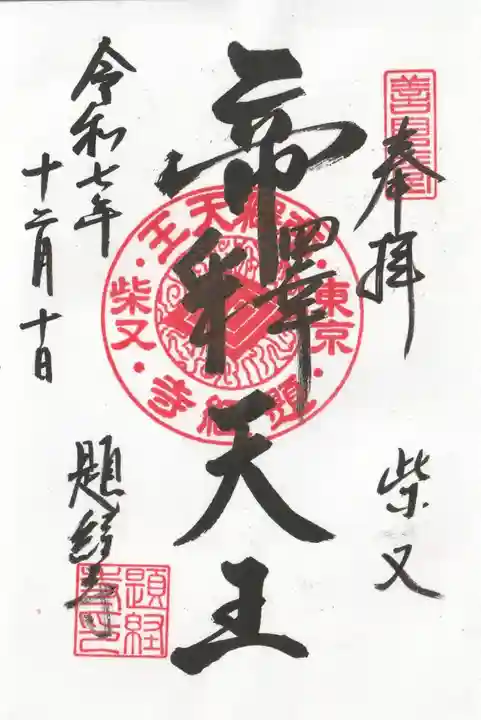 奉拝
柴又
帝釋天王
令和七年
十二月十日
題経寺
帝釋天王
東京
柴又
題経寺
題経
寺印